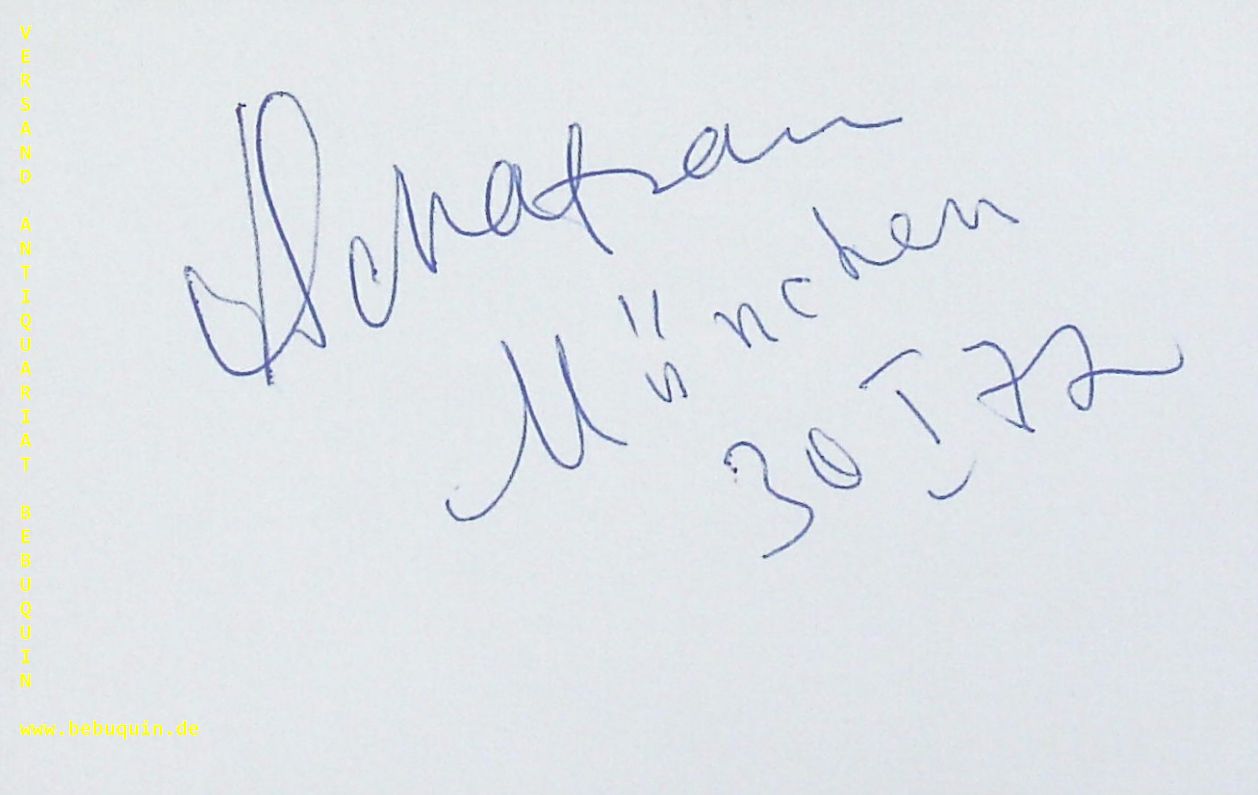 VERSAND ANTIQUARIAT BEBUQUIN
www.bebuquin.de
München
30 I 77